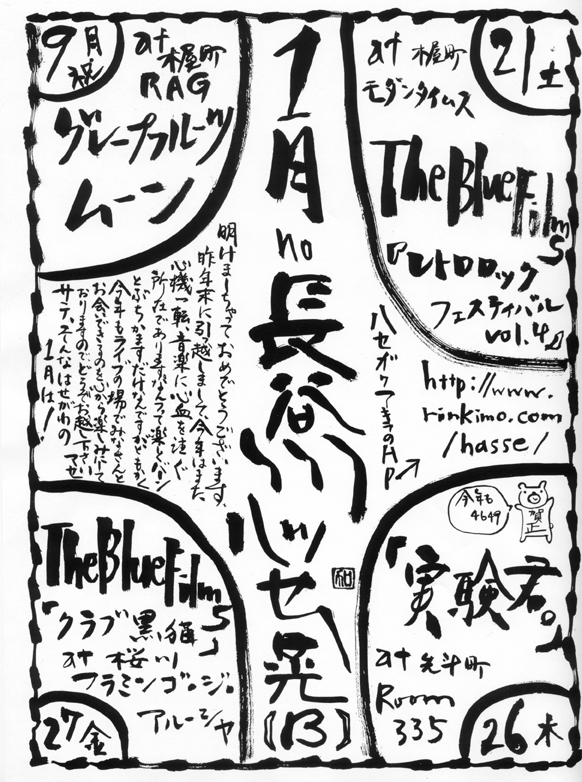 9月祝
at 木屋町
RAG
グレープフルーツ
ムーン
21土
at 木屋町
モダンタイムス
The Blue Films
『レトロロック
フェスティバル
vol.4』
1月
no
長谷川
ハッセ晃
(B)
明けましちゃっておめでとうございます。
昨年末に引っ越しまして、今年はまた
心機一転、音楽に心血を注ぐ
今年もライブの場でみなさんと
お会いできるのを心から楽しみにして
おりますのでどうぞお越し下さいませ
サテ、そんなはせがわの
1月は!
ハセガワアキラのHP
http://www.
rinkimo.com
/hasse/
The Blue Films
「クラブ黒猫」
at 桜川
フラミンゴ・ジ・
アルーシャ
27金
今年も
4649
賀正
「実験君。」
at 先斗町
Room
335
26木